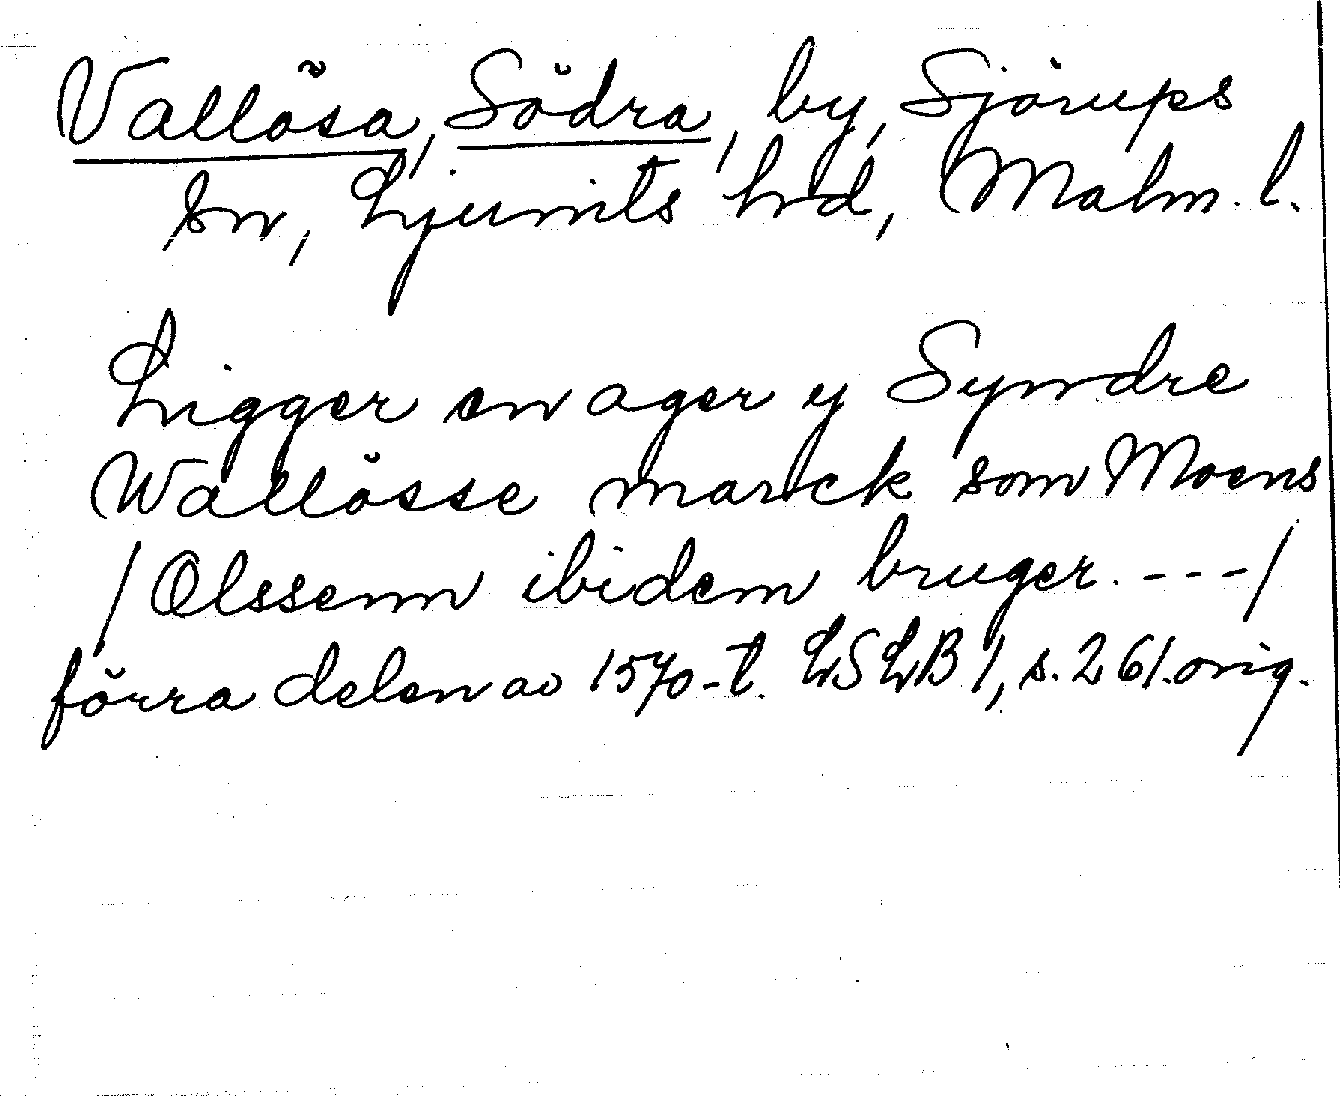 Vallösa, Södra, by, Sjörups
sn, Ljunits hrd, Malm. l.
Ligger en ager y Syndre
Wallösse marck som Moens
/ Olssenn ibidem bruger. - - - /
förra delen av 1570-t. LSLB 1, s. 261. orig.